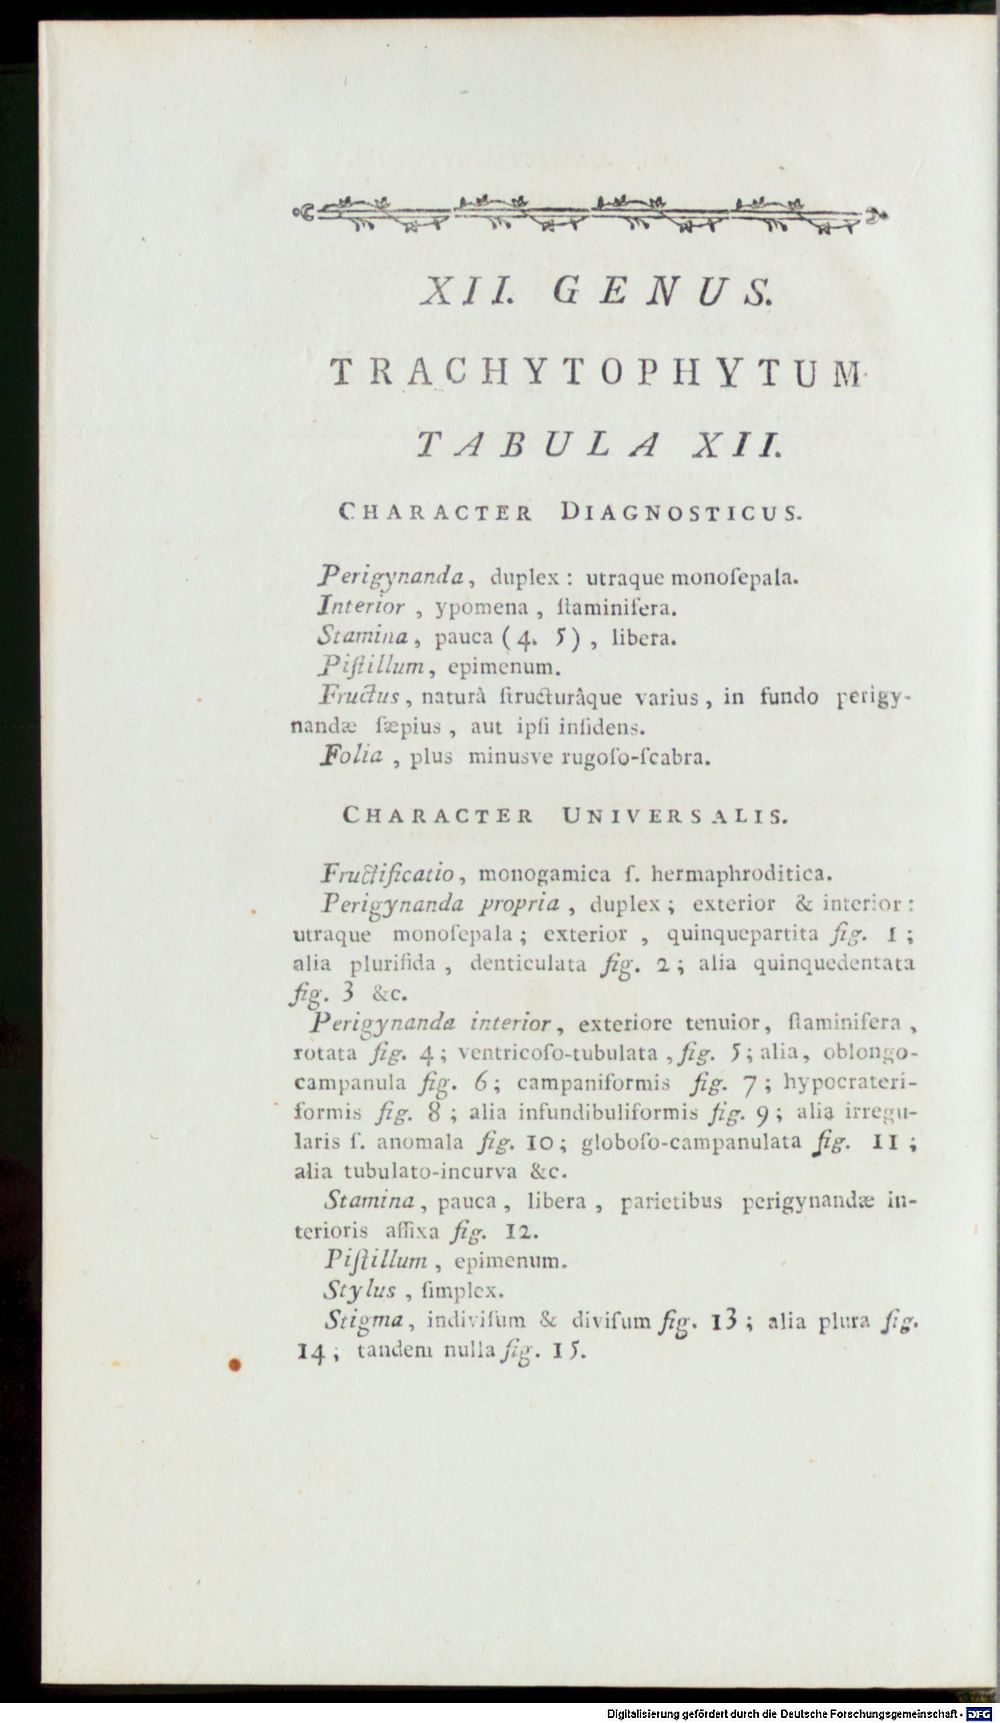 XII. GENUS.
TRACHYTOPHYTUM
TABULA XII.
CHARACTER DIAGNOSTICUS.
Perigynanda, duplex : utraque monoſepala.
Interior , ypomena , ſtaminifera.
Stamina, pauca ( 4. 5 ) , libera.
Piſtillum, epimenum.
Fructus, naturà ſtructurâque varius , in fundo perigy-
nandæ ſæpius , aut ipſi inſidens.
Folia , plus minusve rugoſo-ſcabra.
CHARACTER UNIVERSALIS.
Fructificatio, monogamica ſ. hermaphroditica.
Perigynanda propria , duplex ; exterior & interior :
utraque monoſepala ; exterior , quinquepartita fig. 1 ;
alia plurifida , denticulata fig. 2 ; alia quinquedentata
fig. 3 &c.
Perigynanda interior, exteriore tenuior, ſtaminifera ,
rotata fig. 4 ; ventricoſo-tubulata , fig. 5 ; alia, oblongo-
campanula fig. 6 ; campaniformis fig. 7 ; hypocrateri-
formis fig. 8 ; alia infundibuliformis fig. 9 ; alia irregu-
laris ſ. anomala fig. 10 ; globoſo-campanulata fig. 11 ;
alia tubulato-incurva &c.
Stamina, pauca , libera , parietibus perigynandæ in-
terioris affixa fig. 12.
Piſtillum , epimenum.
Stylus , ſimplex.
Stigma, indiviſum & diviſum fig. 13 ; alia plura fig.
14 ; tandem nulla fig. 15.
Digitalisierung gefördert durch die Deutsche Forschungsgemeinschaft - DFG